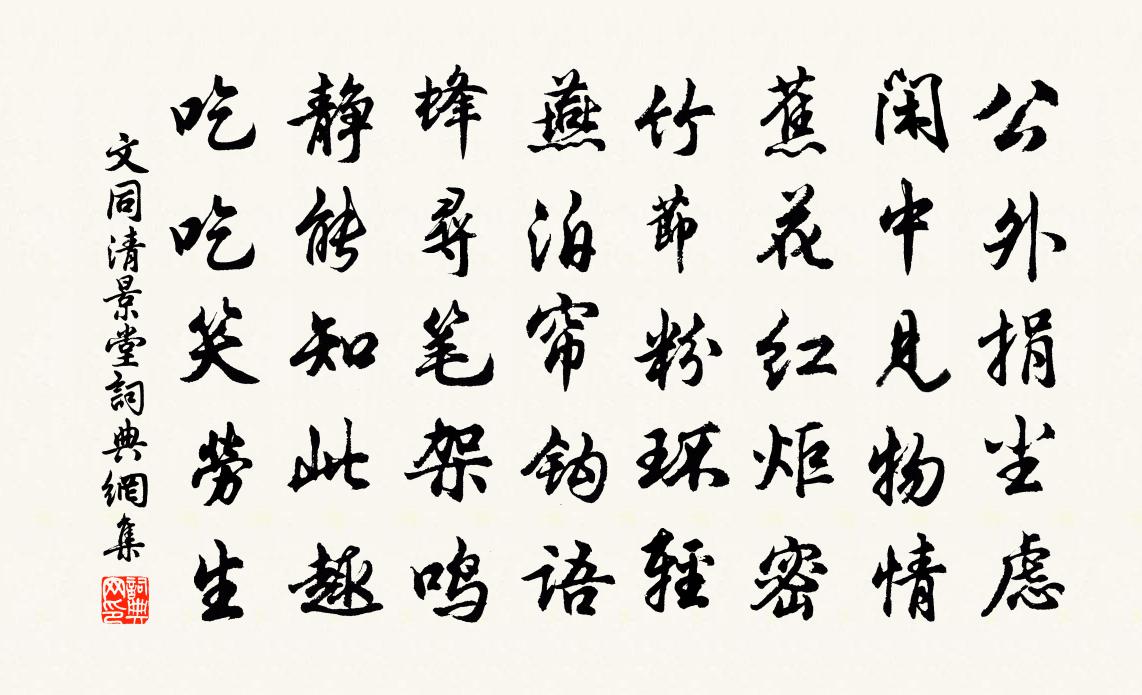 公外捐尘虑
闲中见物情
蕉花红炬密
竹節粉环輕
燕泊帘钩语
蜂尋笔架鸣
静能知此趣
吃吃笑勞生
文同清景堂詞典網集
詞典网印